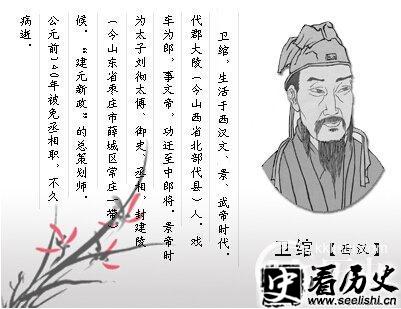 卫绾，生活于西汉文、景、武帝时代。
代郡大陵（今山西省北部代县）人。戏
车为郎，事文帝，功迁至中郎将。景帝时
为太子刘彻太傅、御史、丞相，封建陵
（今山东省枣庄市薛城区常庄一带）
候。“建元新政”的总策划师。
公元前140年被免丞相职，不久
病逝。
卫绾【西汉】
看历史
www.seelishi.cn